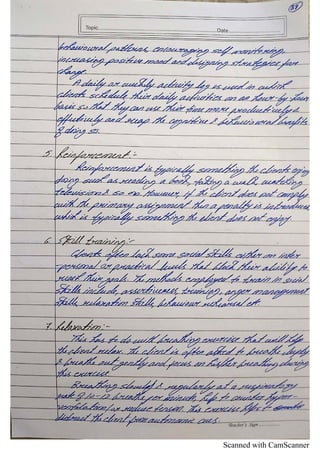 37
Topic
Date
behavioural patterns, encouraging self monitoring,
increasing positive mood and designing strategies for
change.
A daily or weekly activity log is used in which
clients schedule their daily activities on an hour-by-hour
basis so that they can use their time more productively &
effectively and reap the cognitive & behavioural benefits
of doing so.
5. Reinforcement :-
Reinforcement is typically something the clients enjoy
doing such as reading a book, taking a walk, watching
television & so on. However, if the client does not comply
with the primary assignment then a penalty is introduced
which is typically something the client does not enjoy
6. Skill training :-
Clients often lack some social skills either on inter
personal or practical levels that block their ability to
reach their goals. The methods employed to train in social
skills include assertiveness training, anger management
skills, relaxation skills, behaviour rehearsal etc.
7. Relaxation :-
This has to do with breathing exercises that will help
the client relax. The client is often asked to breathe deeply
& breathe out gently and focus on his/her breathing during
this exercise
Breathing slowly & regularly at a respiratory
rate of 10-12 breaths per minute help to counter hyper-
ventilation or reduce tension. This exercise helps to
distract the client from autonomic cues.
Teacher's Sign
Scanned with CamScanner